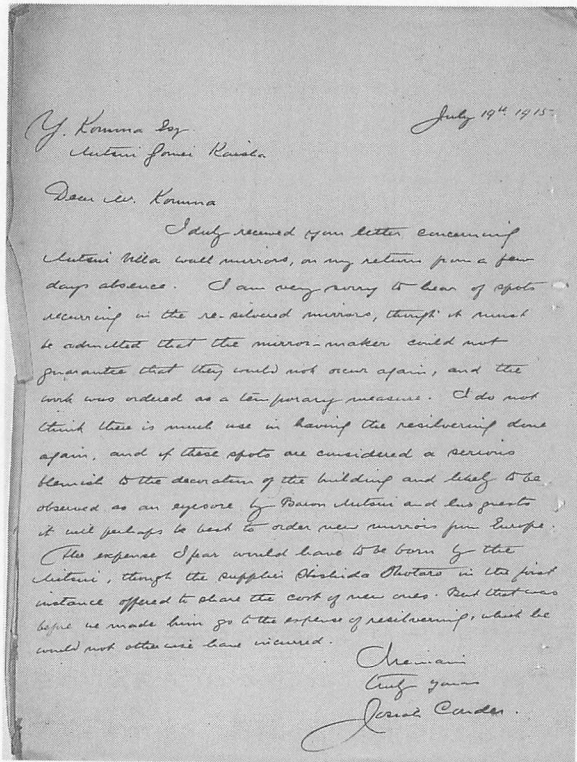 July 19th. 1915.
Y. Komma Esq
Mitsui Gomei Kaisha
Dear Mr. Komma
I duly received your letter concerning
Mitsui Villa wall mirrors, on my return from a few
days absence. I am very sorry to hear of spots
recurring in the re-silvered mirrors, though it must
be admitted that the mirror-maker could not
guarantee that they would not occur again, and the
work was ordered as a temporary measure. I do not
think there is much use in having the resilvering done
again, and if these spots are considered a serious
blemish to the decoration of the building and likely to be
observed as an eyesore by Baron Mitsui and his guests
it will perhaps be best to order new mirrors from Europe.
The expense I fear would have to be born by the
Mitsui, though the supplier Shishida in the first
instance offered to share the cost of new ones. But that was
before we made him go to the expense of resilvering, which he
would not otherwise have incurred.
I remain
truly yours
Josiah Conder.